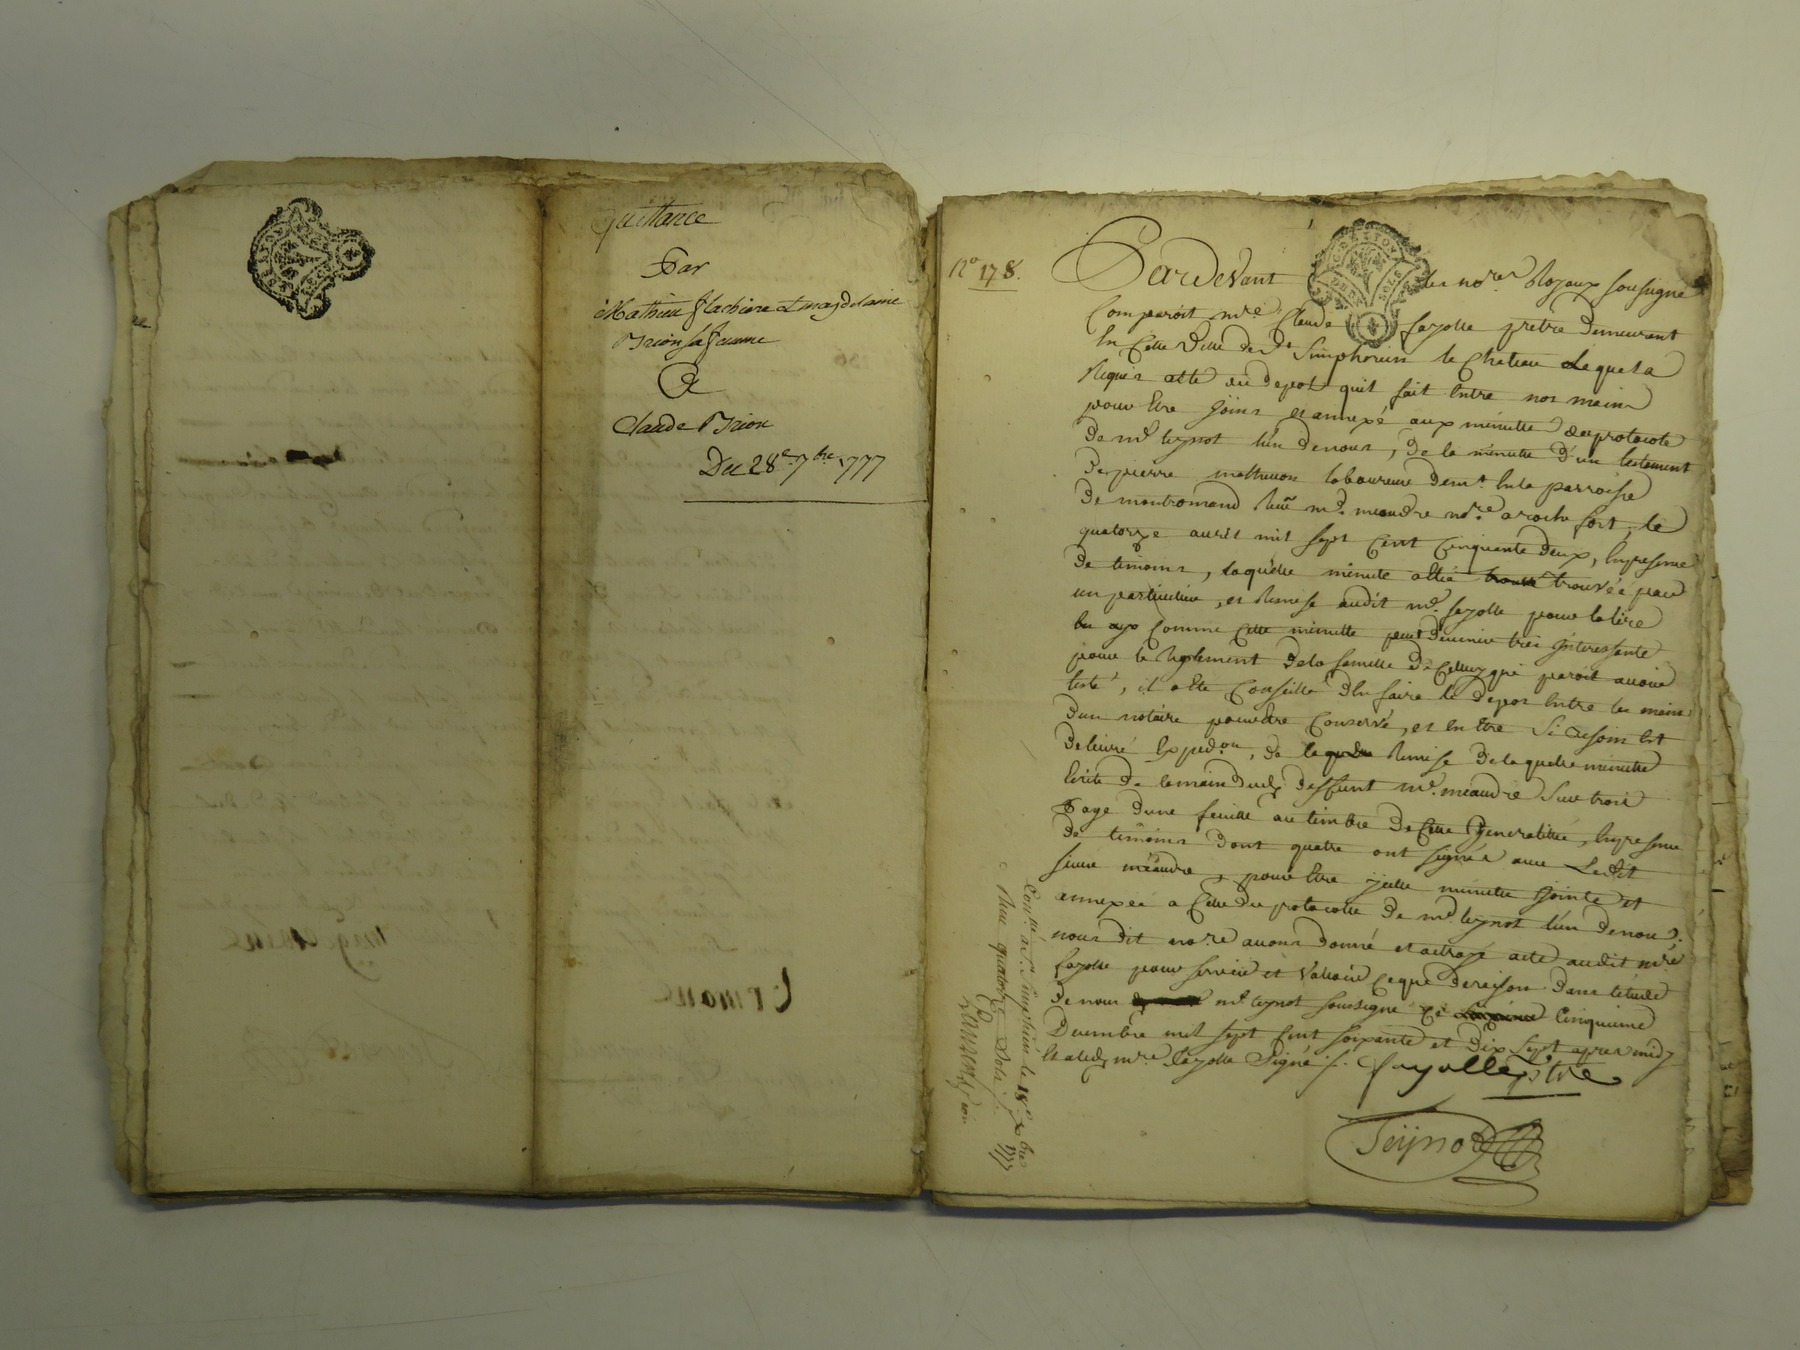 quittance
Par
Mathieu flachere et magdelaine
Brion sa femme
A
Claude Brion
Du 28e 7bre 1777
No 178.
Pardevant les nores Royaux soussigné
Comparoit mre Claude fayolle pretre demeurant
En Cette Ville de St Simphorien le Chateau Lequel a
Requis acte du depot quil fait Entre nos mains
pour Etre joins et annexé aux minutte du protocole
de me teynot l'un de nous, de la minutte d'un testament
de pierre mathevon laboureur demt En la parroisse
de montromand Reçu me. meaudre nore a rochefort, le
quatorze avril mil sept Cent Cinquante deux, En presence
de temoins, laquelle minute a été trouvéé par
un particulier, et Remise audit me. fayolle pour la lire
Comme Cette minutte peut devenir tres jnteressente
pour le Reglement de la famille de Celluy qui paroit avoir
testé, il a Ete Conseillé d'En faire le depot Entre les mains
d'un notaire pour Etre Conservé, et En Etre Si Besoin Est
delivré Expedon, de Remise de laquelle minutte
Ecrite de la main dudt deffunt me. meaudre Sur trois
Page d'une feuille au timbre de Cette generalitée, En presence
de temoins dont quatre ont signés avec Ledit
sieur meaudre, pour Etre minutte jointe et
annexéé a Celle du protocolle de me teynot l'un de nous.
nous dit nore avons donné et octroyé acte audit mre
fayolle pour servir et Valloir Ce que de raison dans l'etude
de nous me teynot soussigné Ce Cinquieme
Decembre mil sept Cent soixante et Dix Sept apres midy
Et a ledt mre fayolle Signé ./. fayolle ptre
Teynot
Conllé a St. Simphorien le 18e xbre 1777
Reçu quatorze Sols ./.